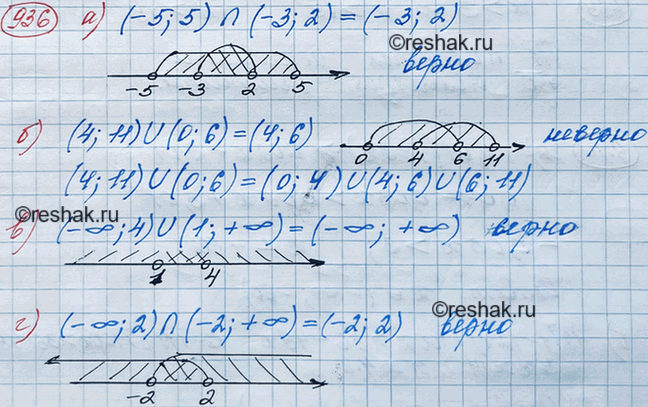 936 а) (-5; 5) ∩ (-3; 2) = (-3; 2)
©reshak.ru
верно
-5 -3 2 5
б) (4; 11) ∪ (0; 6) = (4; 6) неверно
0 4 6 11
(4; 11) ∪ (0; 6) = (0; 4) ∪ (4; 6) ∪ (6; 11)
©reshak.ru
в) (-∞; 4) ∪ (1; +∞) = (-∞; +∞) верно
1 4
©reshak.ru
г) (-∞; 2) ∩ (-2; +∞) = (-2; 2) верно
-2 2